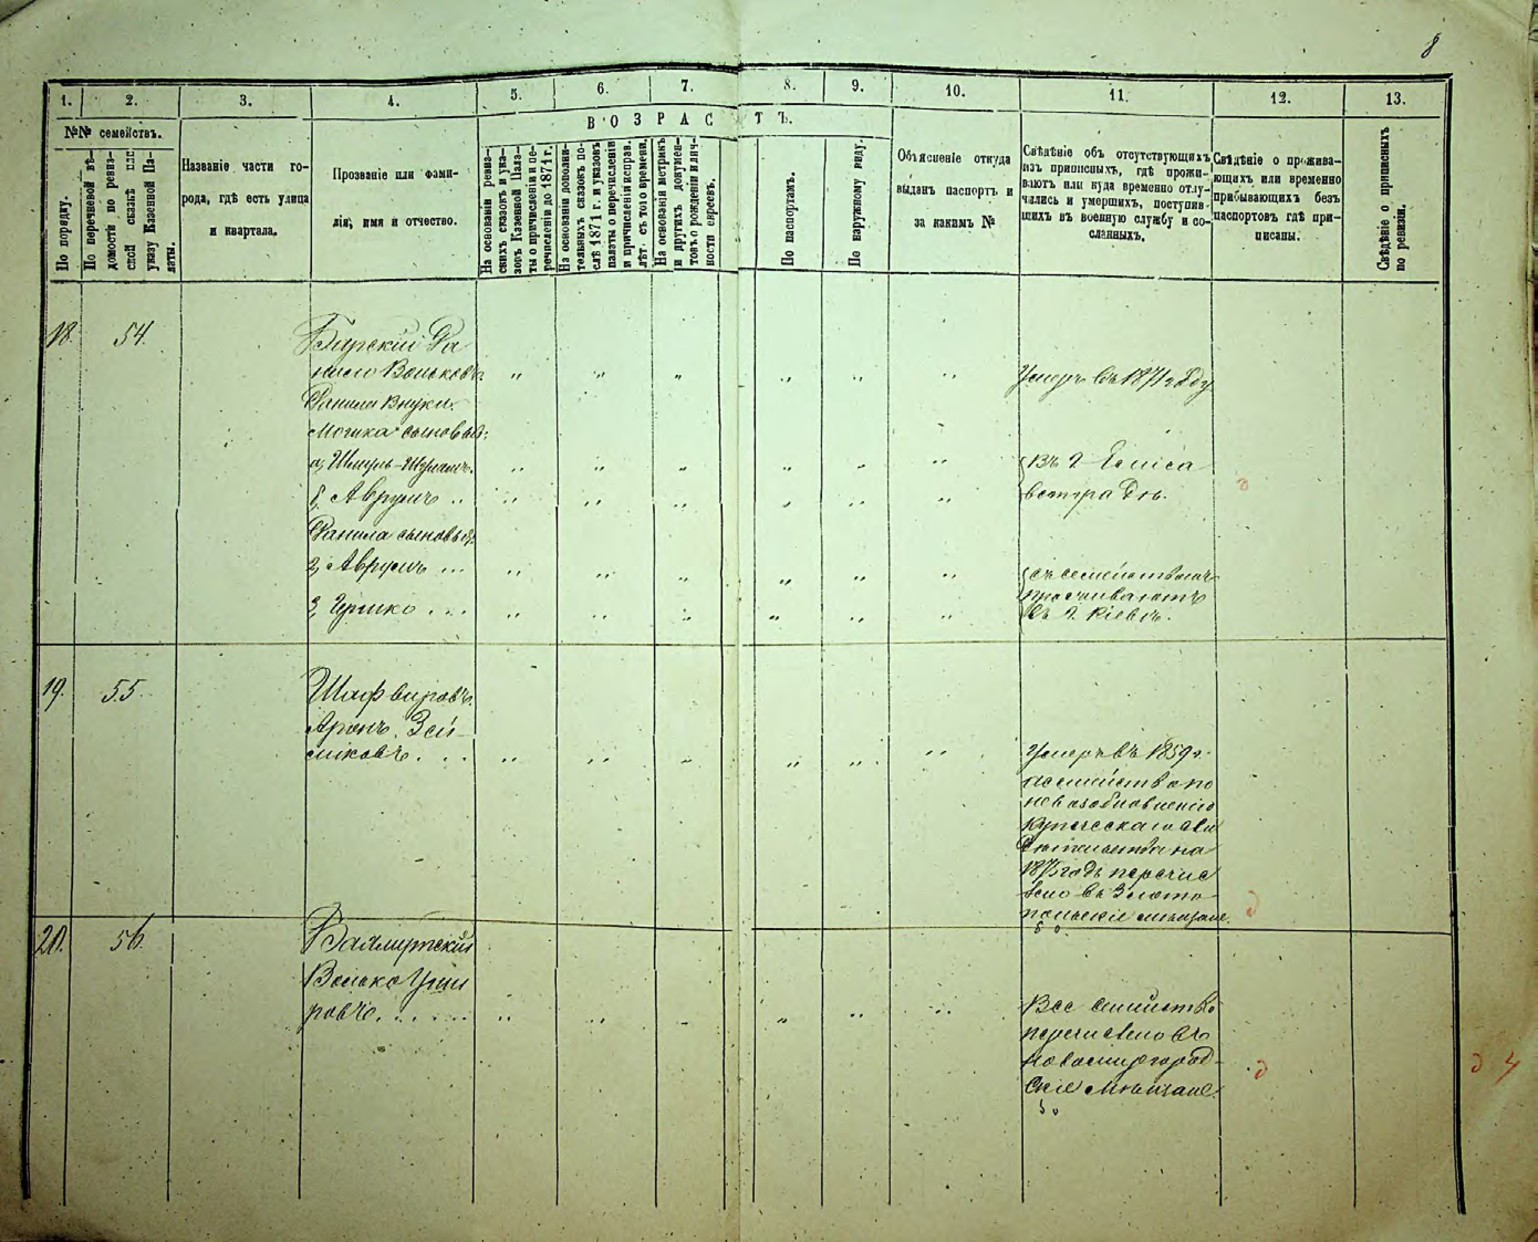 8
1. 2. 3. 4. 5. 6. 7. 8. 9. 10. 11. 12. 13.
№№ семействъ.
По порядку.
По перечневой вѣ-
домости по ревиз-
ской сказкѣ или
указу Казенной Па-
латы.
Названіе части го-
рода, гдѣ есть улица
и квартала.
Прозваніе или фами-
лія, имя и отчество.
ВОЗРАСТЪ.
На основаніи ревиз-
скихъ сказокъ и ука-
зовъ Казенной Пала-
ты о причисленіи и пе-
речисленіи до 1871 г.
На основаніи дополни-
тельныхъ сказокъ по-
слѣ 1871 г. и указовъ
палаты о перечисленіи
и причисленіи исправ.
лѣт. съ того времени.
На основаніи метрикъ
и другихъ докумен-
товъ о рожденіи и лич-
ности евреевъ.
По паспортамъ.
По наружному виду.
Объясненіе откуда
выданъ паспортъ и
за какимъ №
Свѣдѣніе объ отсутствующихъ
изъ приписныхъ, гдѣ прожи-
ваютъ или куда временно отлу-
чились и умершихъ, поступив-
шихъ въ военную службу и со-
сланныхъ.
Свѣдѣніе о прожива-
ющихъ или временно
прибывающихъ безъ
паспортовъ гдѣ при-
писаны.
Свѣдѣніе о приписныхъ
по ревизіи.
18. 54.
Бирскій Да
нило Вольковъ
Умеръ въ 1871 г.
Данила внуки.
Мошка сыновья:
а, Шмуль-
въ г. Елиса
б, Аврумъ ..
ветградѣ.
Данила сыновья:
2, Аврумъ ...
съ семействомъ
проживаютъ
3, Гершко ...
въ г. Кіевѣ.
19. 55.
Шафвировъ
Аронъ Зей-
ликовъ ...
Умеръ въ 1859 г.
а семейство по
невозобновленію
купеческаго сви
дѣтельства на
годъ перечис
лено въ Злато
польскіе мѣщане.
20. 56.
Волько
ровъ ....
Все семейство
перечислено въ
Новомиргород-
скіе мѣщане.